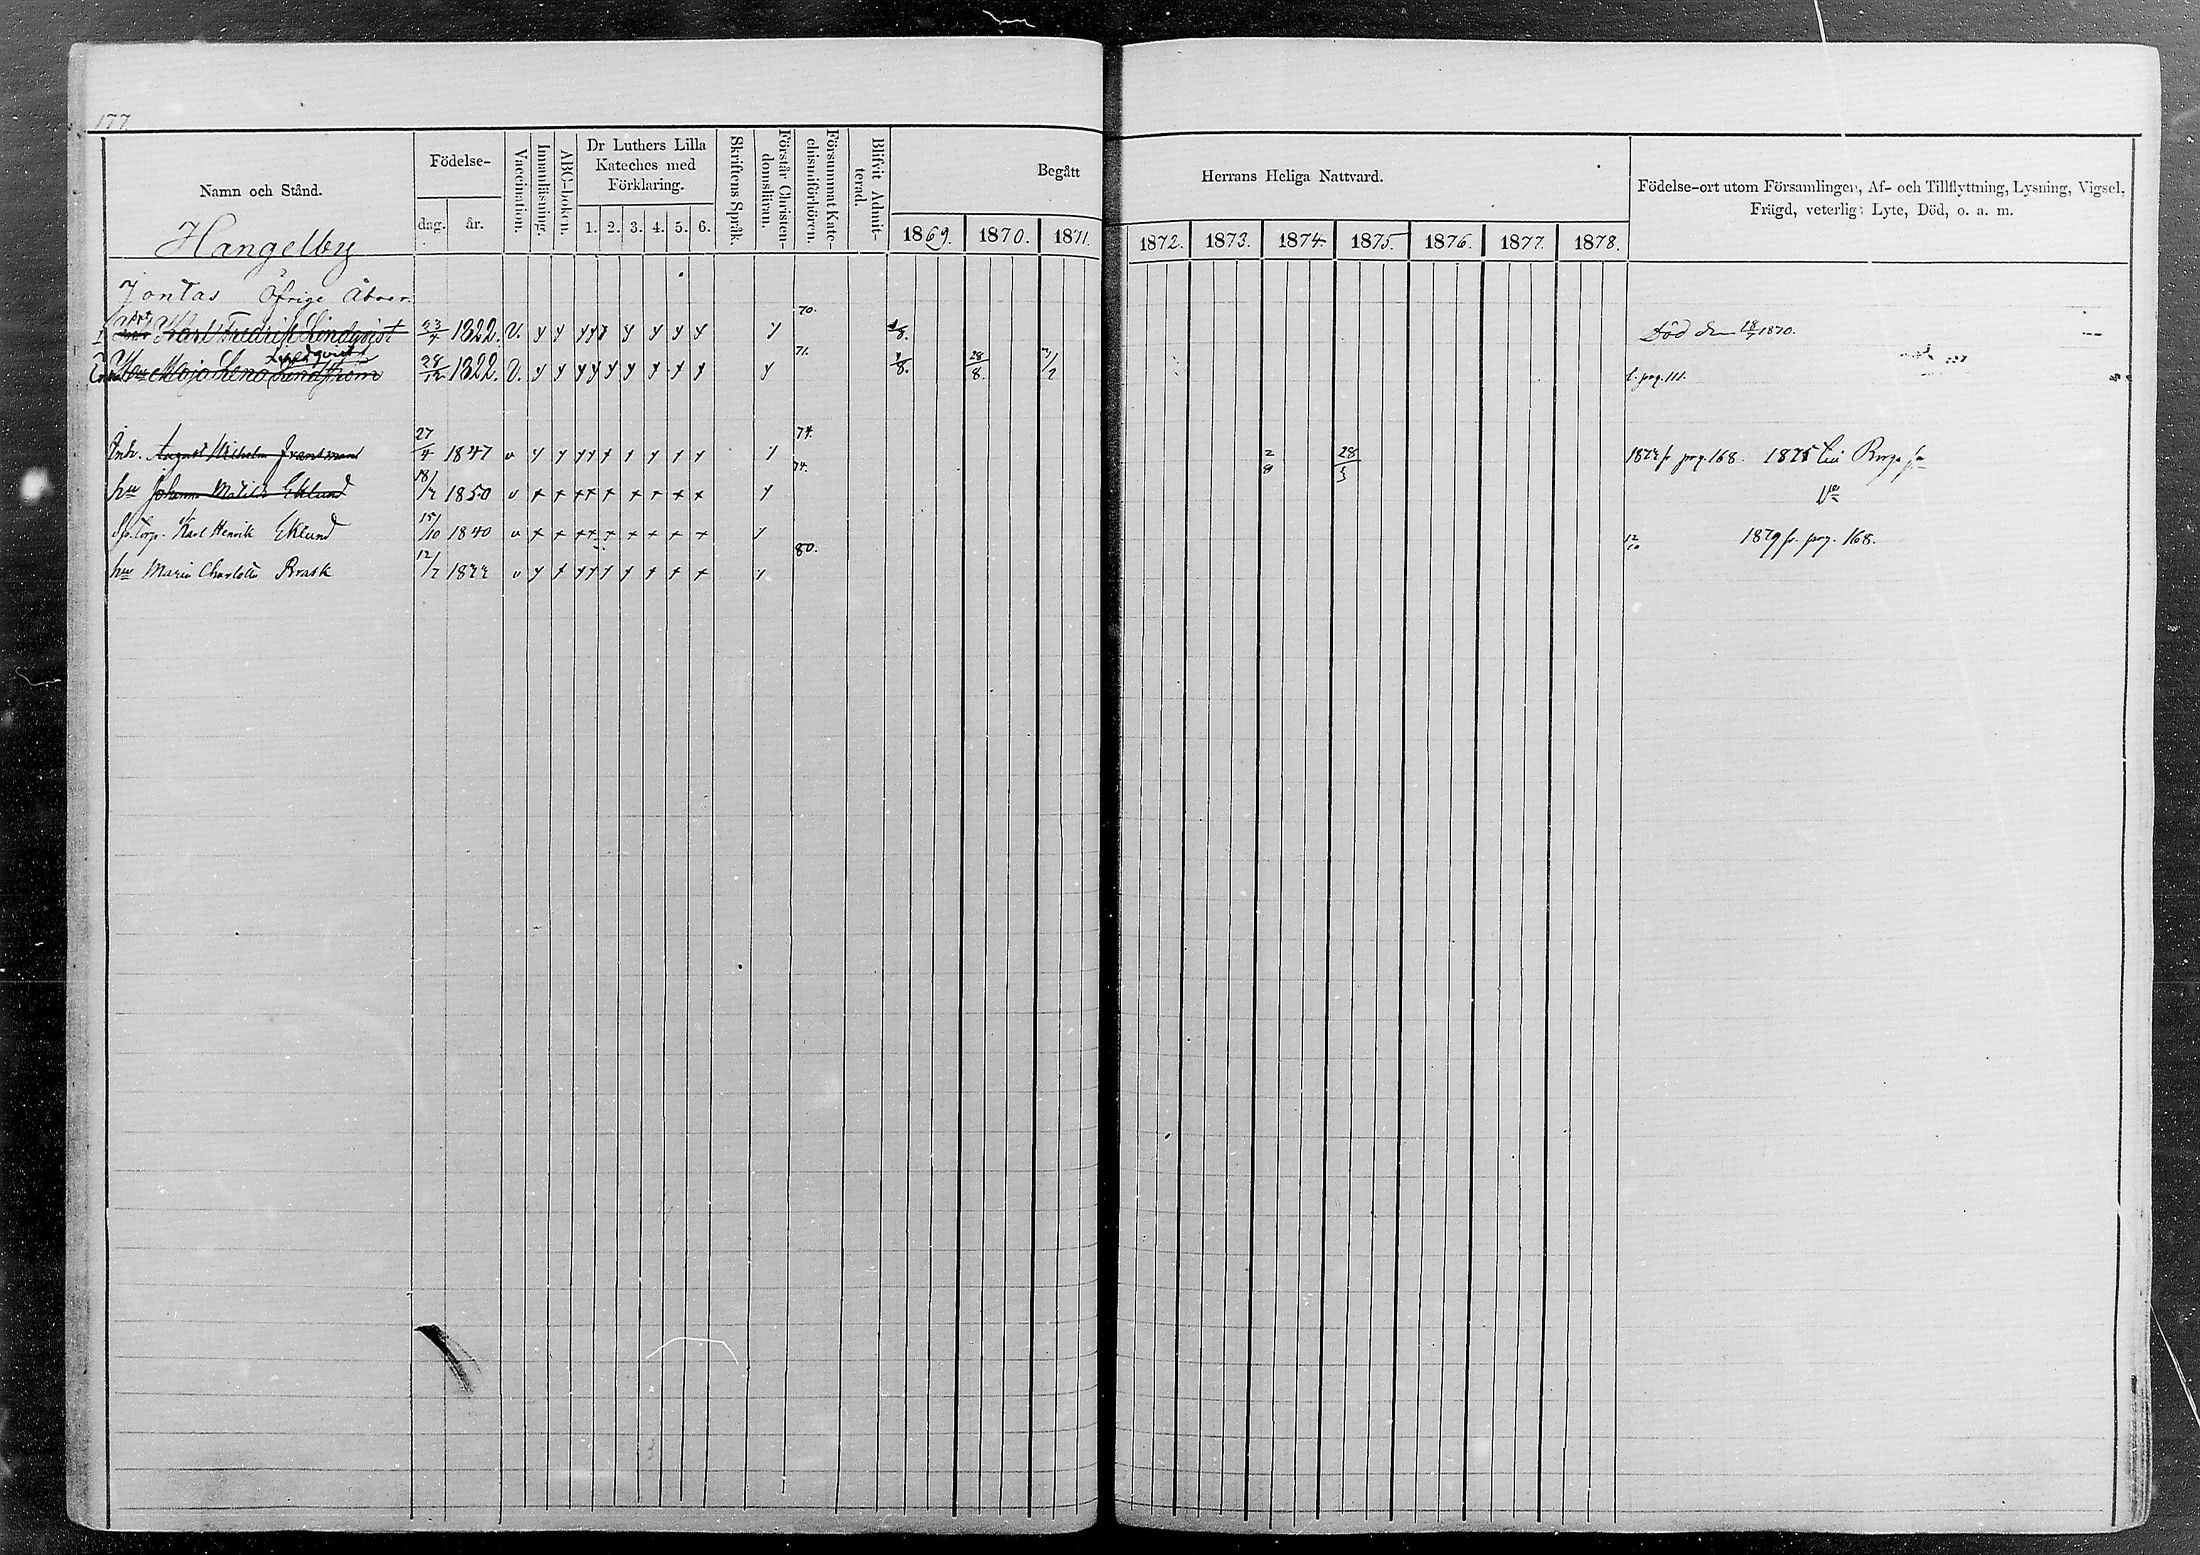 177.
Namn och Stånd.
Födelse-
dag. år.
Vaccination.
Innanläsning.
ABC-boken.
Dr Luthers Lilla
Kateches med
Förklaring.
1. 2. 3. 4. 5. 6.
Skriftens Språk.
Förstår Christen-
domsläran.
Försummat Kate-
chismiförhören.
Blifvit Admit-
terad.
Begått
1869. 1870. 1871.
Herrans Heliga Nattvard.
1872. 1873. 1874. 1875. 1876. 1877. 1878.
Födelse-ort utom Församlingen, Af- och Tillflyttning, Lysning, Vigsel,
Frägd, veterligt Lyte, Död, o. a. m.
Hangelby
Jontas Öfrige Åboer.
Karl Fredrik Lindqvist 23/4 1822. V. y y y y y y y y y y 70. /8. Död den 18/7 1870.
Lindqvist
Maja Lena Lindström 28/12 1822. V. y y y y y y y y y y 71. /8. 28/8. /7 t. pag. 111.
Inh. August Wilhelm Fransman 27/4 1847 v y y y y y y y y y y 74. 2/8 28/3 fr pag. 168. 1875 till Borgå sn
hu Johanna Matilda Eklund 18/7 1850 v + + + + + + + + + y 74.
Karl Henrik Eklund 15/10 1840 v + + + + + + + + + y 12/10 1879 fr. pag. 168.
hu Maria Charlotta Brask 12/7 v y + y y y y + + + y 80.